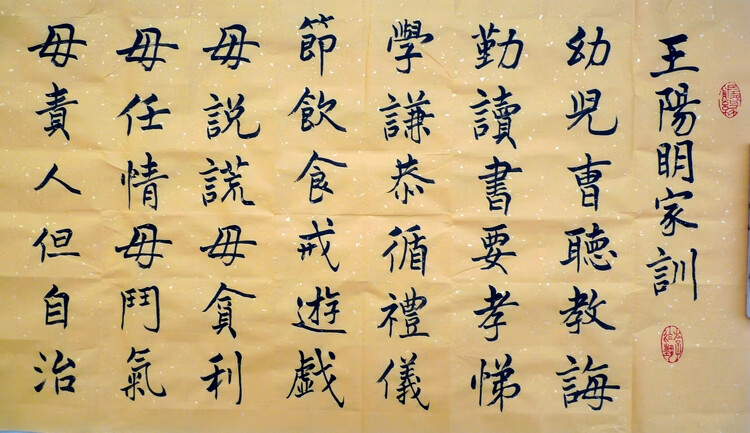 王陽明家訓
幼児曺聽教誨
勤讀書要孝悌
學謙恭循禮儀
節飲食戒遊戲
毋説謊毋貪利
毋任情毋鬥氣
毋責人但自治